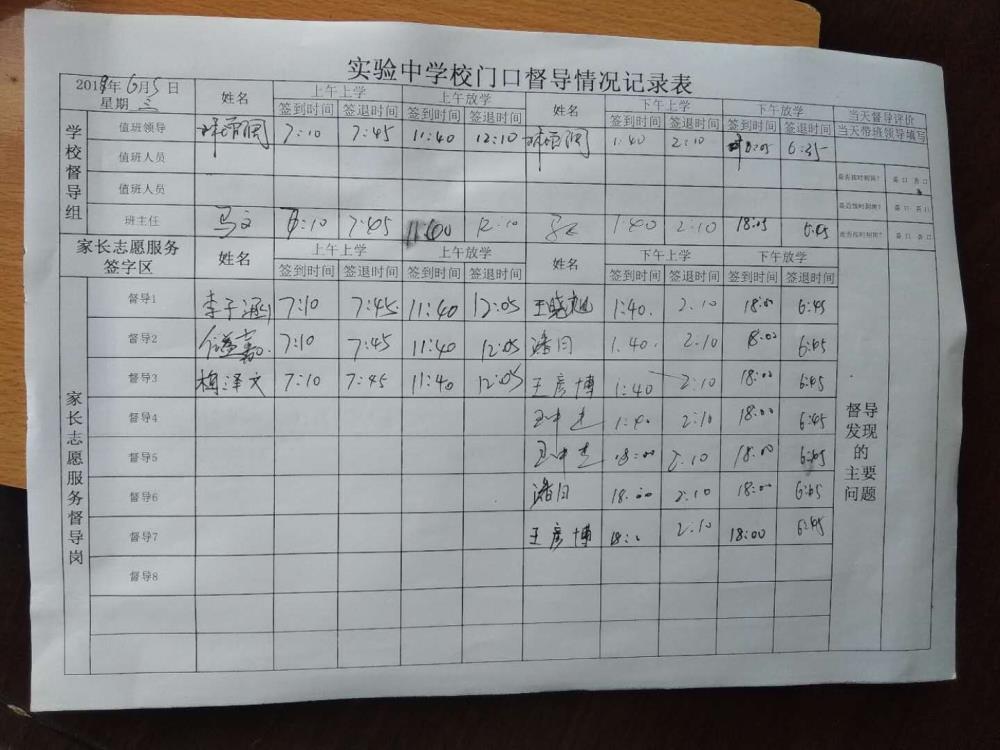 实验中学校门口督导情况记录表
2019年6月5日
星期 三
姓名 上午上学 上午放学 姓名 下午上学 下午放学 当天督导评价
签到时间 签退时间 签到时间 签退时间 签到时间 签退时间 签到时间 签退时间 当天带班领导填写
学校督导组
值班领导 7:10 7:45 11:40 12:10 1:40 2:10 6:35
值班人员
值班人员
班主任 马文 7:45 12:10 1:40 2:10 18:05 6:45
是 口 否 口
是 口 否 口
是 口 否 口
家长志愿服务
签字区
姓名 上午上学 上午放学 姓名 下午上学 下午放学
签到时间 签退时间 签到时间 签退时间 签到时间 签退时间 签到时间 签退时间
家长志愿服务督导岗
督导1 李子涵 7:10 7:45 11:40 12:05 王晓旭 1:40. 2.10 18:00 6:45
督导2 7:10 7:45 11:40 12:05 潘月 1.40. 2.10 18:00 6:45
督导3 梅泽文 7:10 7:45 11:40 12:05 王彦博 1:40 2:10 18:00 6:45
督导4 1:40 2:10 18:00 6:45
督导5 18:00 2.10 18:00 6:45
督导6 潘月 18:00 2:10 18:00 6:45
督导7 王彦博 2.10 18:00 6:45
督导8
督导
发现
的
主要
问题